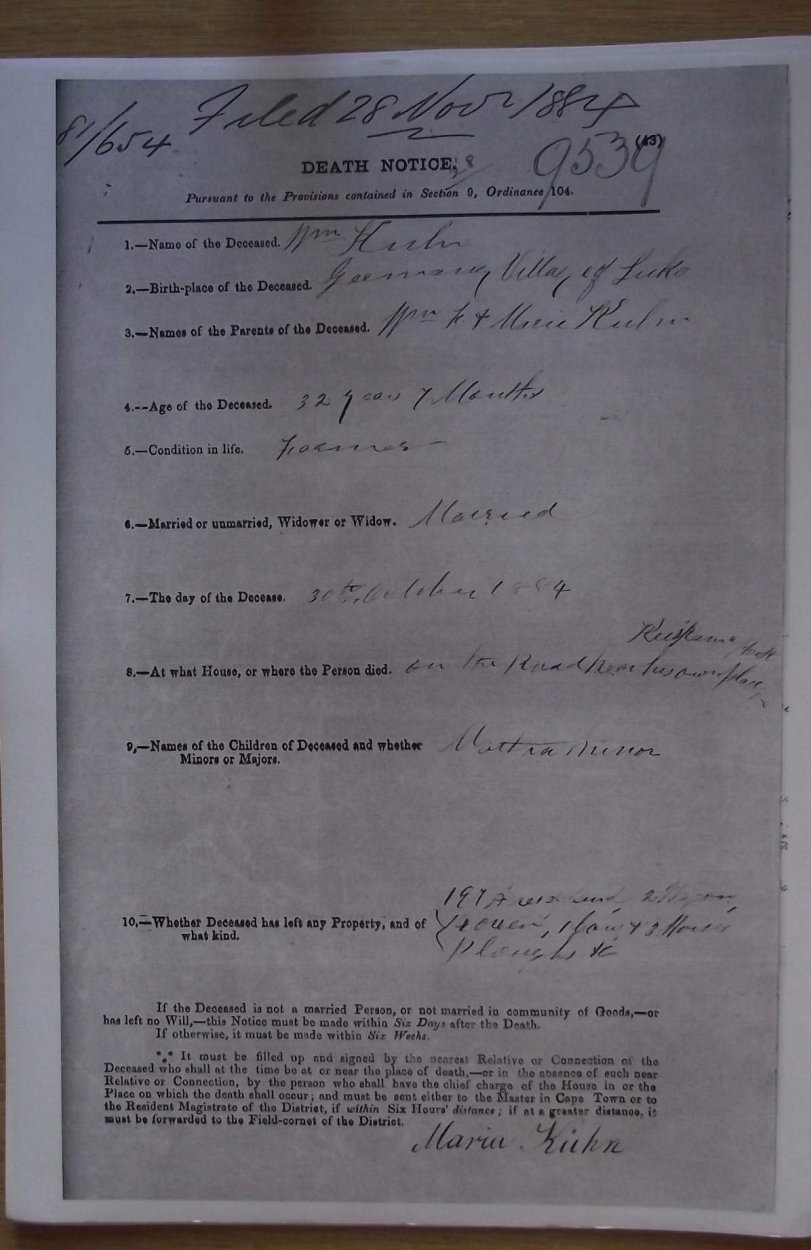 81/654 Filed 28 Novr 1884
(43)
DEATH NOTICE, 9539
Pursuant to the Provisions contained in Section 9, Ordinance 104.
1.—Name of the Deceased. Wm Kuhn
2.—Birth-place of the Deceased. Germany Village of
3.—Names of the Parents of the Deceased. Wm & Marie Kuhn
4.--Age of the Deceased. 32 years 7 Months
5.—Condition in life. Farmer
6.—Married or unmarried, Widower or Widow. Married
7.—The day of the Decease. 30th October 1884
8.—At what House, or where the Person died. on the Road near his own place
9,—Names of the Children of Deceased and whether minor
Minors or Majors.
197 2
10,—Whether Deceased has left any Property, and of & 3 Horses
what kind. Ploughs &c
If the Deceased is not a married Person, or not married in community of Goods,—or
has left no Will,—this Notice must be made within Six Days after the Death.
If otherwise, it must be made within Six Weeks.
*** It must be filled up and signed by the nearest Relative or Connection of the
Deceased who shall at the time be at or near the place of death,—or in the absence of such near
Relative or Connection, by the person who shall have the chief charge of the House in or the
Place on which the death shall occur; and must be sent either to the Master in Cape Town or to
the Resident Magistrate of the District, if within Six Hours' distance; if at a greater distance, it
must be forwarded to the Field-cornet of the District.
Maria Kühn